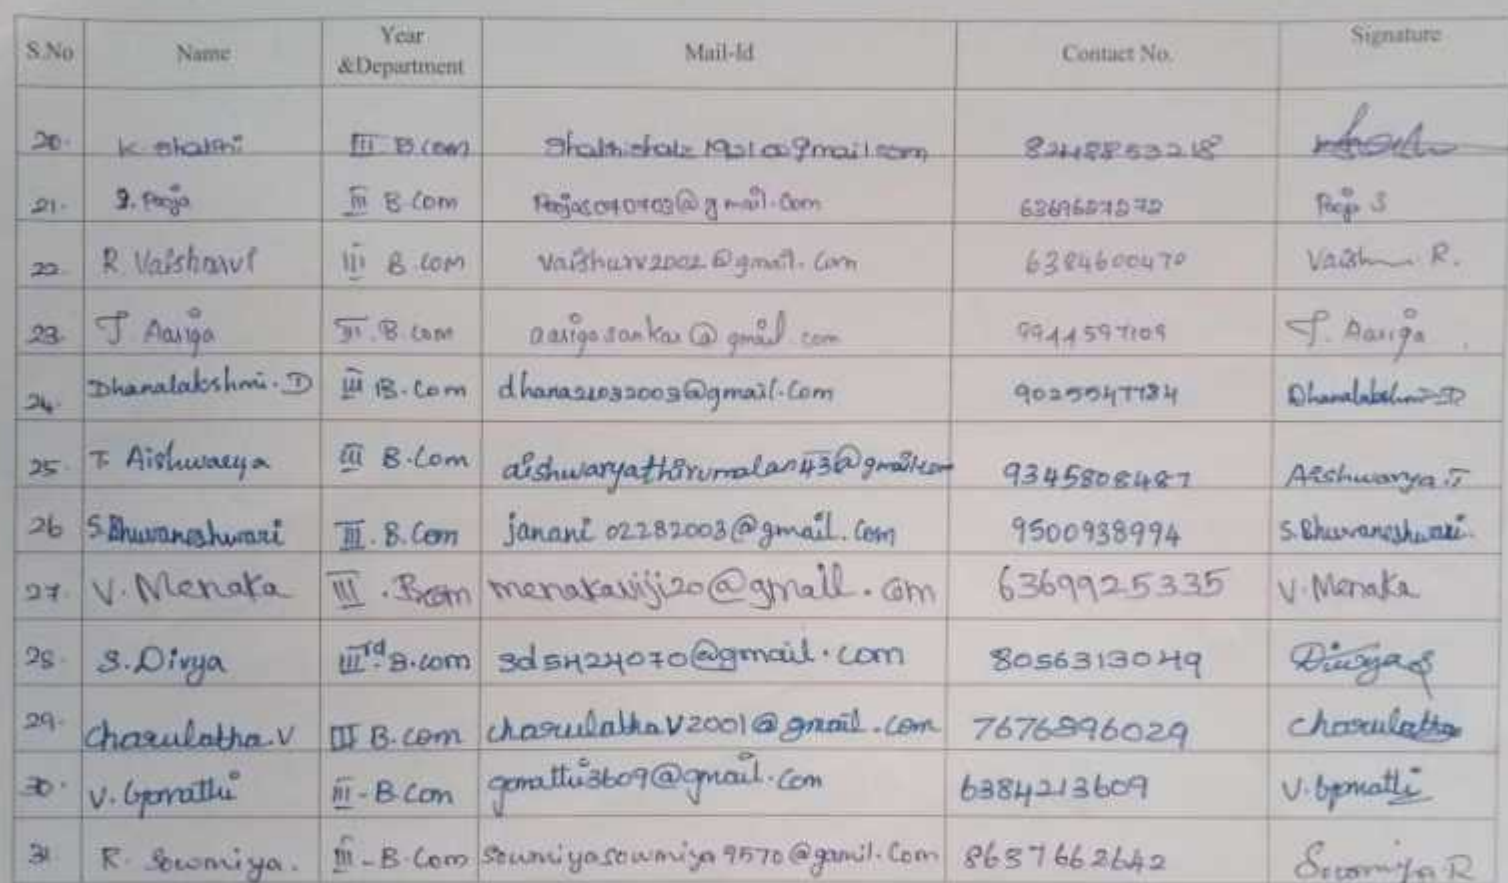 S.No Name Year &Department Mail-Id Contact No. Signature
20. K. Shalini III B.com 8248853218
21. S. Pooja III B.Com Poojas070703@gmail.Com 6369627272 Pooja S
22. R. Vaishnavi III B.com vaishurv2002@gmail.com 6384600470 Vaishnavi R.
23. J. Aariga III.B.com aarigasankar@gmail.com 9944597109 J. Aariga
24. Dhanalakshmi.D III B.Com dhana21032003@gmail.Com 9025547784 Dhanalakshmi D
25. T. Aishwarya III B.Com aishwaryathirumalan43@gmail.com 9345808487 Aishwarya.T
26 S.Bhuvaneshwari III.B.Com janani02282003@gmail.Com 9500938994 S.Bhuvaneshwari.
27. V. Menaka III.Bcom menakaviji20@gmail.com 6369925335 V.Menaka
28. S.Divya IIIrd.B.com sd5424070@gmail.com 8056313049 Divya S
29. Charulatha.V III B.com charulathaV2001@gmail.com 7676896029 Charulatha
30. V.Gomathi III-B.Com gomattu3609@gmail.com 6384213609 V.Gomathi
31 R. Sowmiya. III-B.Com Soumiyasowmiya9570@gamil.Com 8637662642 Sowmiya R